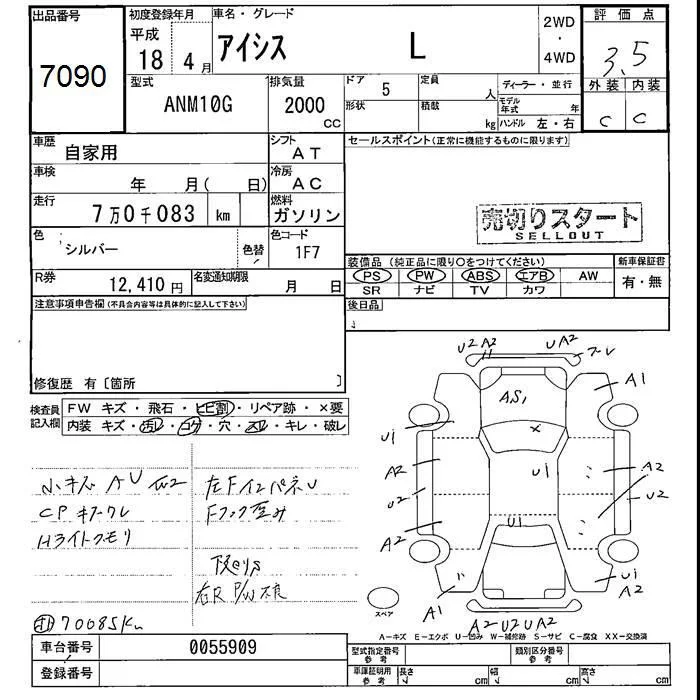 出品番号
7090
初度登録年月
平成
18 年 4 月
車名・グレード
アイシス L
2WD
・
4WD
評価点
3.5
外装 内装
C C
型式
ANM10G
排気量
2000
CC
ドア 5
形状
定員
人
積載
kg
ディーラー・並行
モデル年式 年
ハンドル 左・右
車歴
自家用
シフト
AT
セールスポイント(正常に機能するものに限ります)
車検
年 月( 日)
冷房
AC
走行
7万0千083 km
燃料
ガソリン
売切りスタート
SELLOUT
色
シルバー
色替
色コード
1F7
装備品 (純正品に限り○をつけてください)
新車保証書
PS PW ABS エアB AW
有・無
SR ナビ TV カワ
R券
12,410 円
名変通知期限
月 日
後日品
注意事項申告欄(不具合内容等は具体的に記入して下さい)
修復歴 有〔箇所 〕
検査員
記入欄
FW キズ・飛石・ヒビ割・リペア跡・×要
内装 キズ・汚レ・コゲ・穴・スレ・キレ・破レ
小キズ AU W2
CPキズワレ
Hライトクモリ
左FインパネU
Fフック歪み
下廻りS
右R P/W不良
70085Km
U2 A2
UA2
ズレ
A1
AS1
×
U1
A2
U1
A2
U2
U2
U1
A2
U1
A1
A2
A2 U2 UA2
スペア
A-キズ E-エクボ U-凹み W-補修跡 S-サビ C-腐食 XX-交換済
車台番号
0055909
登録番号
型式指定番号
参考
類別区分番号
参考
車庫証明用
参考
長さ
cm
幅
cm
高さ
cm